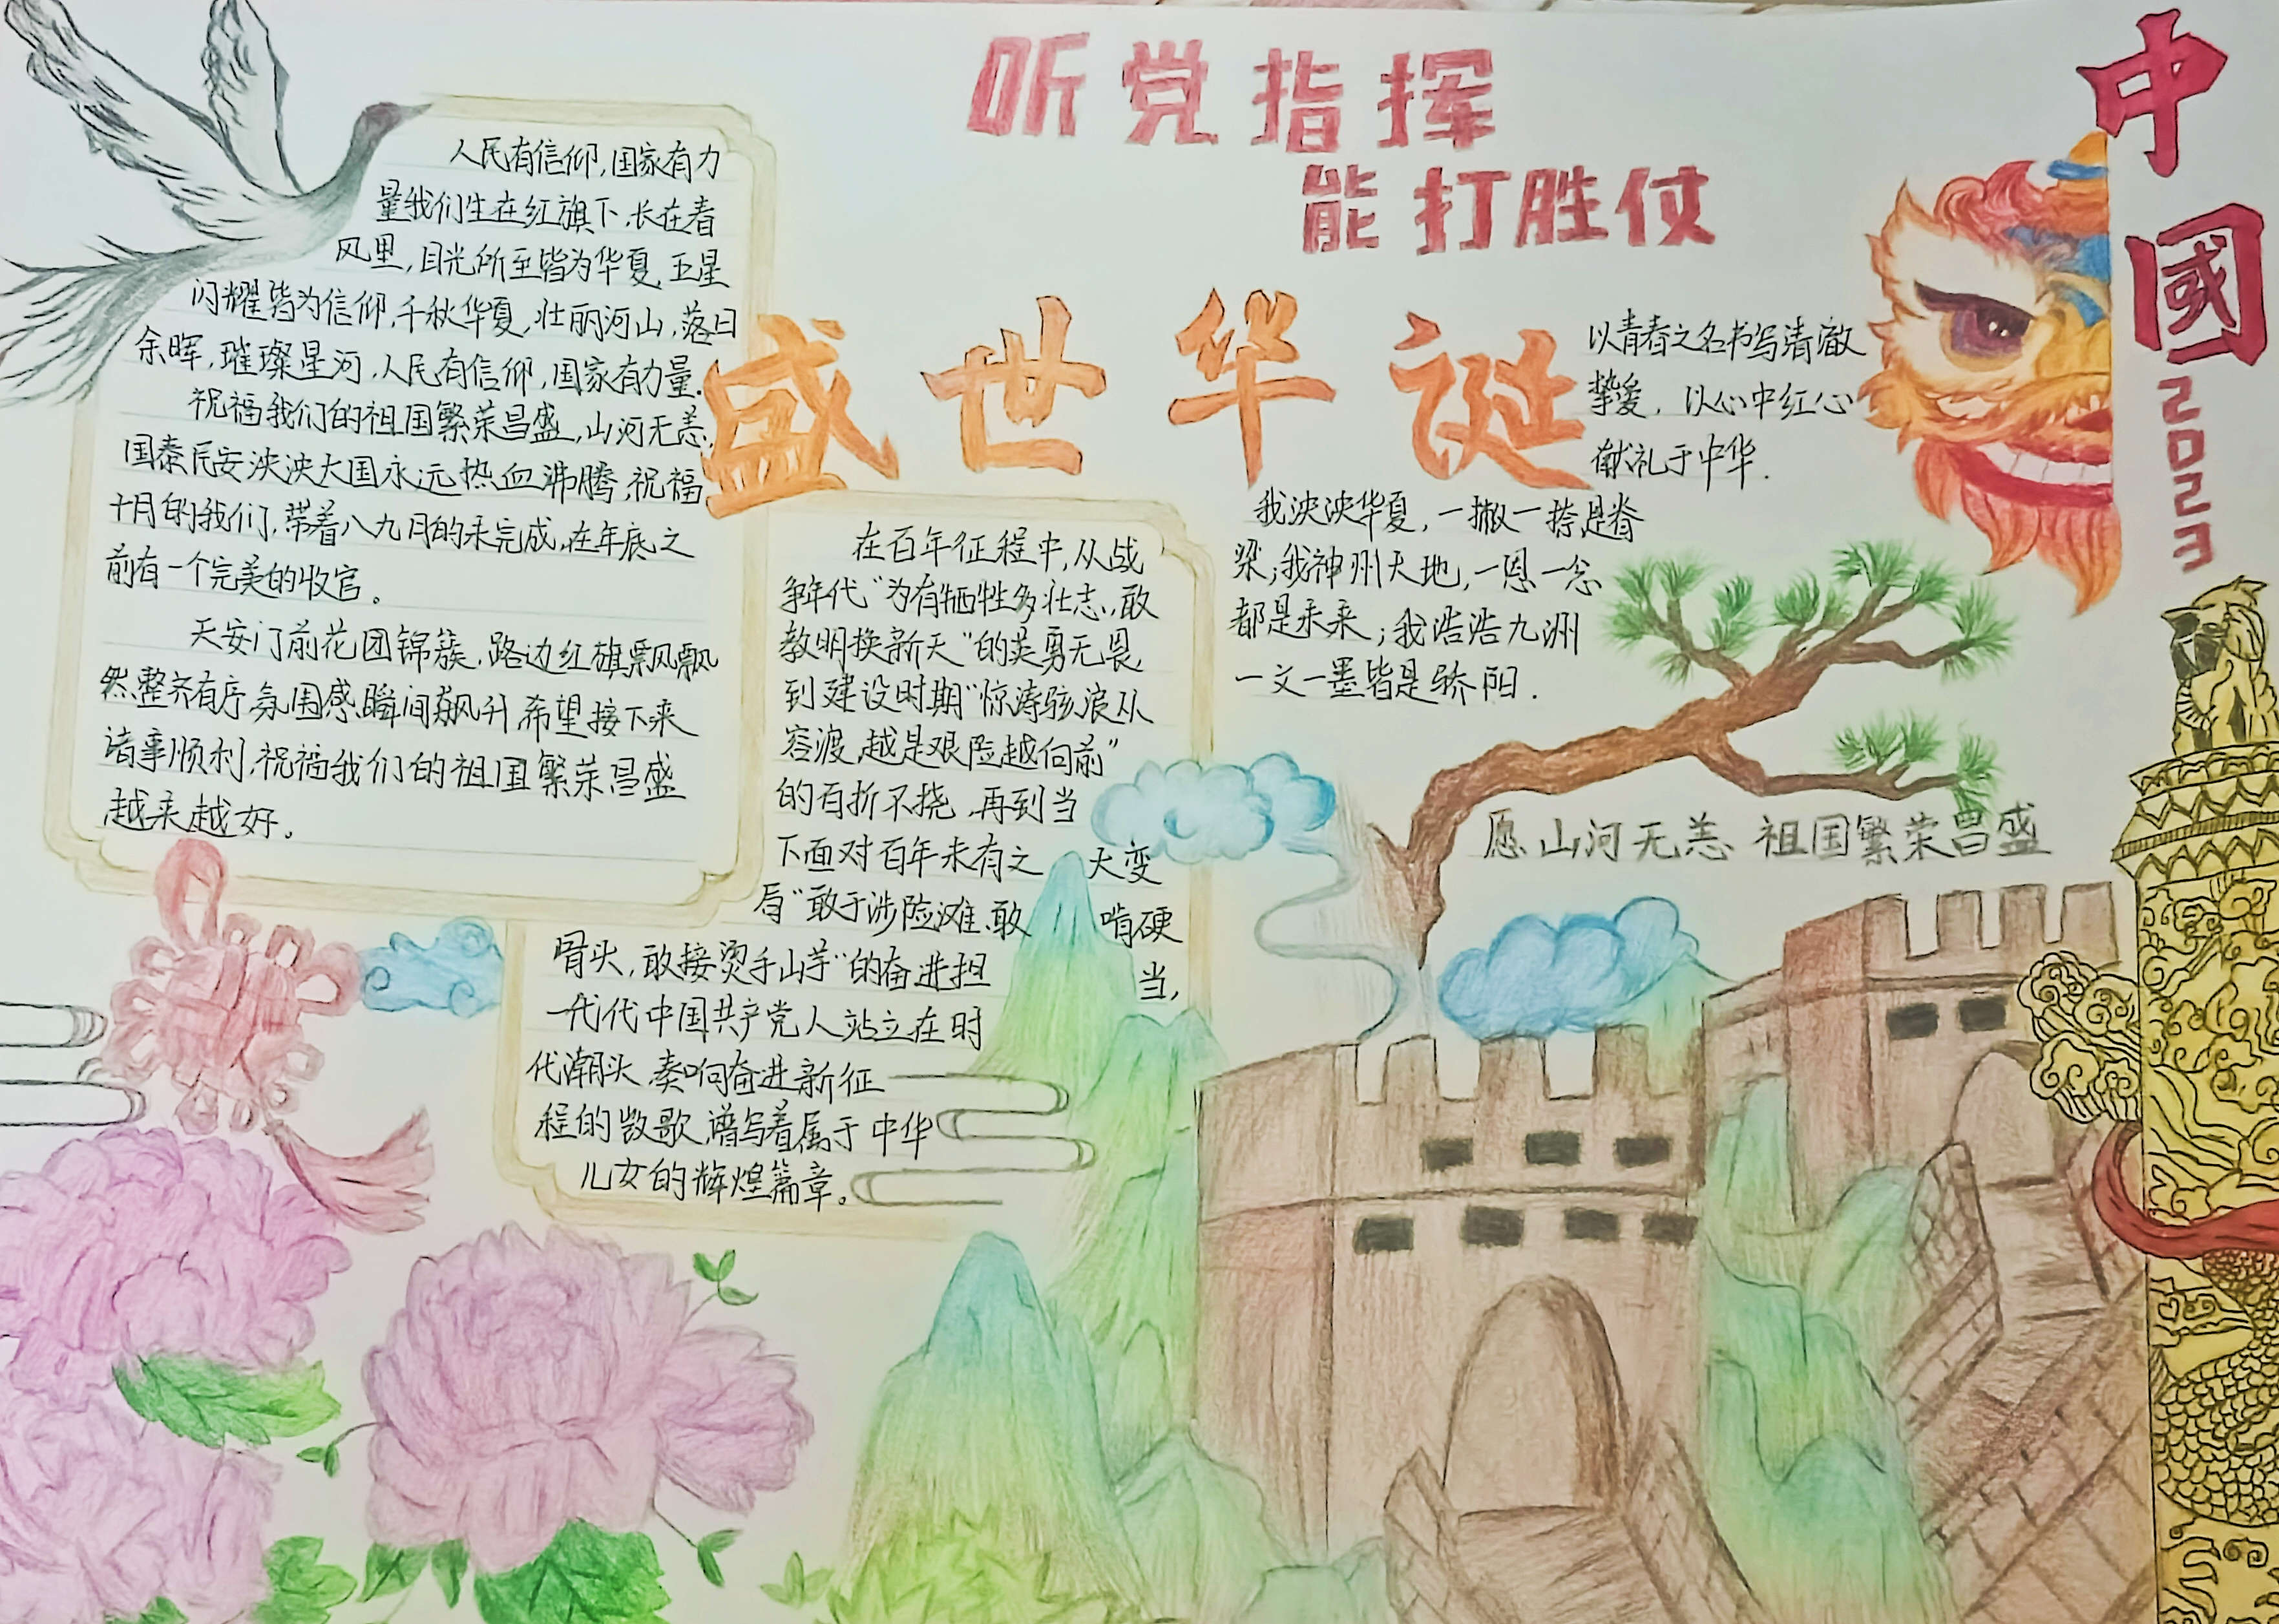 听党指挥
能打胜仗
中國
2023
盛世华诞
人民有信仰,国家有力
量我们生在红旗下,长在春
风里,目光所至皆为华夏,五星
闪耀皆为信仰,千秋华夏,壮丽河山,落日
余晖,璀璨星河,人民有信仰,国家有力量.
祝福我们的祖国繁荣昌盛,山河无恙,
国泰民安泱泱大国永远热血沸腾,祝福
十月的我们,带着八九月的未完成,在年底之
前有一个完美的收官。
天安门前花团锦簇,路边红旗飘飘
然,整齐有序,氛围感瞬间飙升,希望接下来
诸事顺利,祝福我们的祖国繁荣昌盛
,越来越好。
在百年征程中,从战
争年代“为有牺牲多壮志,敢
教明换新天”的英勇无畏,
到建设时期“惊涛骇浪从
容渡,越是艰险越向前”
的百折不挠,再到当
下面对百年未有之 大变
局“敢于涉险滩、敢 啃硬
骨头,敢接烫手山芋”的奋进担 当,
一代代中国共产党人站立在时
代潮头,奏响奋进新征
程的凯歌,谱写着属于中华
儿女的辉煌篇章。
以青春之名书写清澈
挚爱,以心中红心
献礼于中华.
我泱泱华夏,一撇一捺是脊
梁;我神州天地,一恩一念
都是未来;我浩浩九洲
一文一墨皆是骄阳.
愿山河无恙 祖国繁荣昌盛